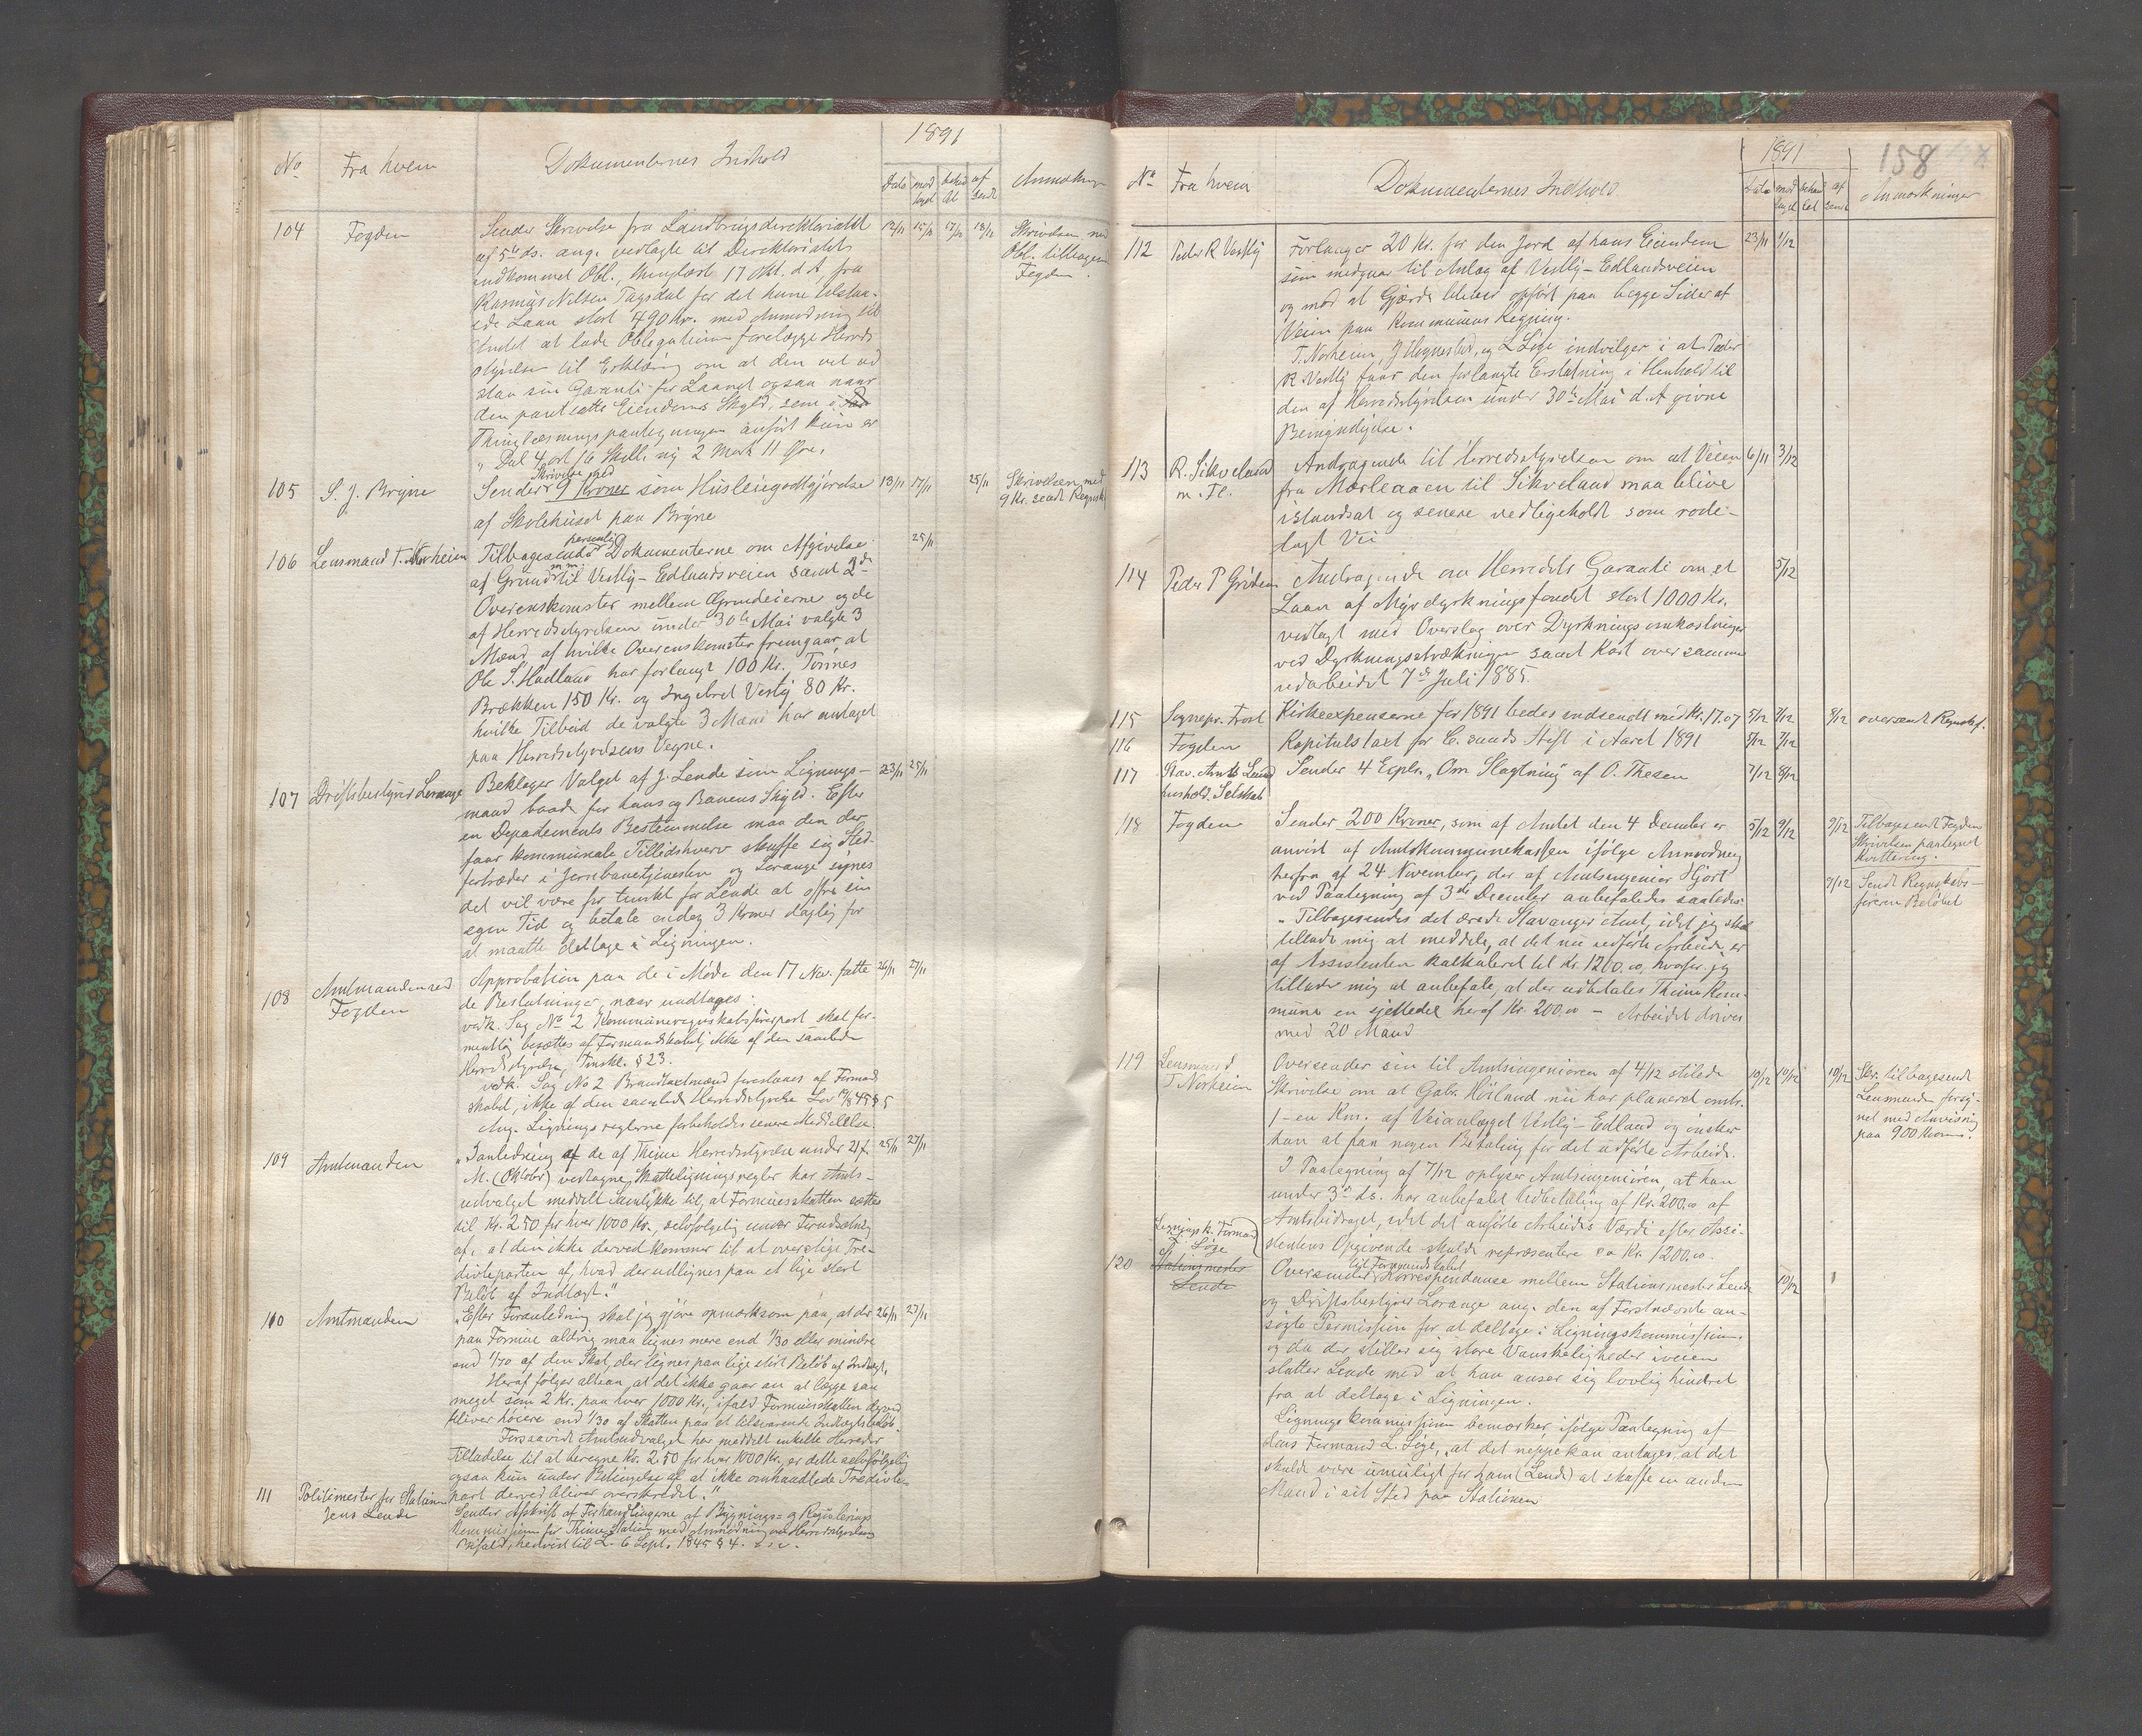 1891
No Fra hvem Dokumenternes Indhold Dato mod taget behand let af sendt Anmærkn
104 Fogden Sender Skrivelse fra Landbrugsdirektoriatet 12/11 15/11 17/11 18/11 Skrivelsen med
af 5te ds. ang. vedlagte til Direktoriatets Obl. tilbagesendt
indkommet Obl. thinglæst 17 Okt. d.A. fra Fogden.
Rasmus Nilsen Tagsdal for det ham tilstaa-
ede Laan stort 490 Kr. med Anmodning til
Amtet at lade Obligationen forelægge Herreds
styrelsen til Erklæring om at den vil ved
staa sin Garanti for Laanet ogsaa naar
den pantsatte Eiendoms Skyld, som i
Thinglæsningspaategningen anført kun er
„Dal 4 ort 16 Skill. ny 2 Mark 11 Øre.
105 S. J. Bryne Sender Skrivelse med 9 Kroner som Husleiegodtgjørelse 13/11 17/11 25/11 Skrivelsen med
af Skolehuset paa Bryne 9 Kr. sendt Regnsk.
106 Lensmand T. Norheim Tilbagesender personlig Dokumenterne om Afgivelse 25/11
af Grund m.m. til Vestly-Edlandsveien samt 2de
Overenskomster mellem Grundeierne og de
af Herredsstyrelsen under 30te Mai valgte 3
Mænd af hvilke Overenskomster fremgaar at
Ole S. Hadland har forlangt 100 Kr. Tønnes
Brækken 150 Kr. og Ingebret Vestly 80 Kr.
hvilke Tilbud de valgte 3 Mænd har antaget
paa Herredsstyrelsens Vegne.
107 Driftsbestyrer Lorange Beklager Valget af J. Lende som Lignings- 23/11 25/11
mand baade for hans og Banens Skyld. Efter
en Departements Bestemmelse maa den der
faar kommunale Tillidshverv skaffe sig Sted-
fortræder i Jernbanetjenesten og Lorange synes
det vil være for tungt for Lende at ofre sin
egen Tid og betale endog 3 Kroner daglig for
at maatte deltage i Ligningen.
108 Amtmanden ved Approbation paa de i Møde den 17 Nov. fatte 26/11 27/11
Fogden de Beslutninger, naar undtages:
vedk. Sag No 2 Kommuneregnskabsførerpost skal for-
mentlig besættes af Formandskabet, ikke af den samlede
Herredsstyrelse, Fmskl. § 23.
vedk. Sag No 2 Brandtaxtmænd foreslaaes af Formand
skabet, ikke af den samlede Herredsstyrelse Lov 19/8 45 § 5
Ang. Ligningsreglerne forbeholdes senere Meddelelse.
109 Amtmanden „I anledning af de af Thime Herredsstyrelse under 21 f. 25/11 27/11
M. (Oktober) vedtagne Skatteligningsregler har Amts-
udvalget meddelt Samtykke til, at Formuesskatten sættes
til Kr. 2.50 for hver 1000 Kr., selvfølgelig under Forudsætning
af, at den ikke derved kommer til at overstige Tre-
divteparten af, hvad der udlignes paa et lige stort
Beløb af Indtægt."
110 Amtmanden „Efter Foranledning skal jeg gjøre opmærksom paa, at der 26/11 27/11
paa Formue aldrig maa lignes mere end 1/30 eller mindre
end 1/70 af den Skat, der lignes paa lige stort Beløb af Indtægt.
Heraf følger altsaa, at det ikke gaar an at lægge saa
meget som 2 Kr. paa hver 1000 Kr., ifald Formuesskatten derved
bliver høiere end 1/30 af Skatten paa et tilsvarende Indtægtsbeløb.
Forsaavidt Amtsudvalget har meddelt enkelte Herreder
Tilladelse til at beregne Kr. 2.50 for hver 1000 Kr., er dette selvfølgelig
ogsaa kun under Betingelse af at ikke omhandlede Tredivte-
part derved bliver overskredet."
111 Politimester for Stationen Sender Afskrift af Forhandlingerne af Bygnings- og Regulerings
Jens Lende kommissionen for Thime Station med Anmodning om Herredsstyrelsens
Bifald, henvist til L. 6 Sept. 1845 § 4.
158
1891
No Fra hvem Dokumenternes Indhold Dato mod taget behand let af sendt Anmærkninger
112 Peder R Vestly Forlanger 20 Kr. for den Jord af hans Eiendom 23/11 1/12
som medgaar til Anlæg af Vestly-Edlandsveien
og mod at Gjærde bliver opført paa begge Sider af
Veien paa Kommunens Regning.
T. Norheim, J Hognestad, og L Løge indvilger i at Peder
R. Vestly faar den forlangte Erstatning i Henhold til
den af Herredsstyrelsen under 30te Mai d.A. givne
Bemyndigelse.
113 R. Sikveland Andragende til Herredsstyrelsen om at Veien 6/11 3/12
m. Fl. fra Mærleaaen til Sikveland maa blive
istandsat og senere vedligeholdt som rode-
lagt Vei
114 Peder P Grødem Andragende om Herredets Garanti om et 5/12
Laan af Myrdyrkningsfondet stort 1000 Kr.
vedlagt med Overslag over Dyrkningsomkostninger
ved Dyrkningsstrækningen samt Kart over samme
udarbeidet 7de Juli 1885.
115 Sognepr. Frost Kirkeexpenserne for 1891 bedes indsendt med Kr. 17.07 5/12 7/12 8/12 oversendt Regnskf.
116 Fogden Kapitulstaxt for C. sands Stift i Aaret 1891 5/12 7/12
117 Stav. Amts Land Sender 4 Expl. „Om Slagtning" af O. Thesen 7/12 8/12
hushold. Selskab
118 Fogden Sender 200 Kroner, som af Amtet den 4 December er 5/12 9/12 9/12 Tilbagesendt Fogdens
anvist af Amtskommunekassen ifølge Anmodning Skrivelsen paategnet
herfra af 24 November, der af Amtsingeniør Hjort Kvittering.
ved Paategning af 3die December anbefaledes saaledes: 9/12 Sendt Regnskabs-
„Tilbagesendes det ærede Stavanger Amt, idet jeg skal føreren Beløbet
tillade mig at meddele, at det nu udførte Arbeide er
af Assistenten kalkuleret til Kr. 1200.00, hvorfor jeg
tillader mig at anbefale, at der udbetales Thime Kom-
mune en sjettedel heraf Kr. 200,00 – Arbeidet drives
med 20 Mand
119 Lensmand Oversender sin til Amtsingeniøren af 4/12 stilede 10/12 10/12 10/12 Skr. tilbagesendt
T Norheim Skrivelse om at Gabr. Høiland nu har planeret omtr. Lensmanden forsy-
1 – en Km. af Veianlægget Vestly-Edland og ønsker net med Anvisning
han at faa nogen Betaling for det udførte Arbeide. paa 900 Kroner.
I Paategning af 7/12 oplyser Amtsingeniøren, at han
under 3die ds. har anbefalet Udbetaling af Kr. 200.00 af
Amtsbidraget, idet det anførte Arbeides Værdi efter Assi-
stentens Opgivende skulde repræsentere ca Kr. 1200.00.
120 Lignings k. Formand Oversender til Formandskabet Korrespondanse mellem Stationsmester Lende 10/12
L. Løge og Driftsbestyrer Lorange ang. den af Førstnævnte an-
Stationsmester søgte Permission for at deltage i Ligningskommissionen.
Lende og da der stiller sig store Vanskeligheder iveien
slutter Lende med at han anser sig lovlig hindret
fra at deltage i Ligningen.
Ligningskommissionen bemærker, ifølge Paategning af
dens Formand L. Løge, „at det neppe kan antages, at det
skulde være umuligt for ham (Lende) at skaffe en anden
Mand i sit Sted paa Stationen